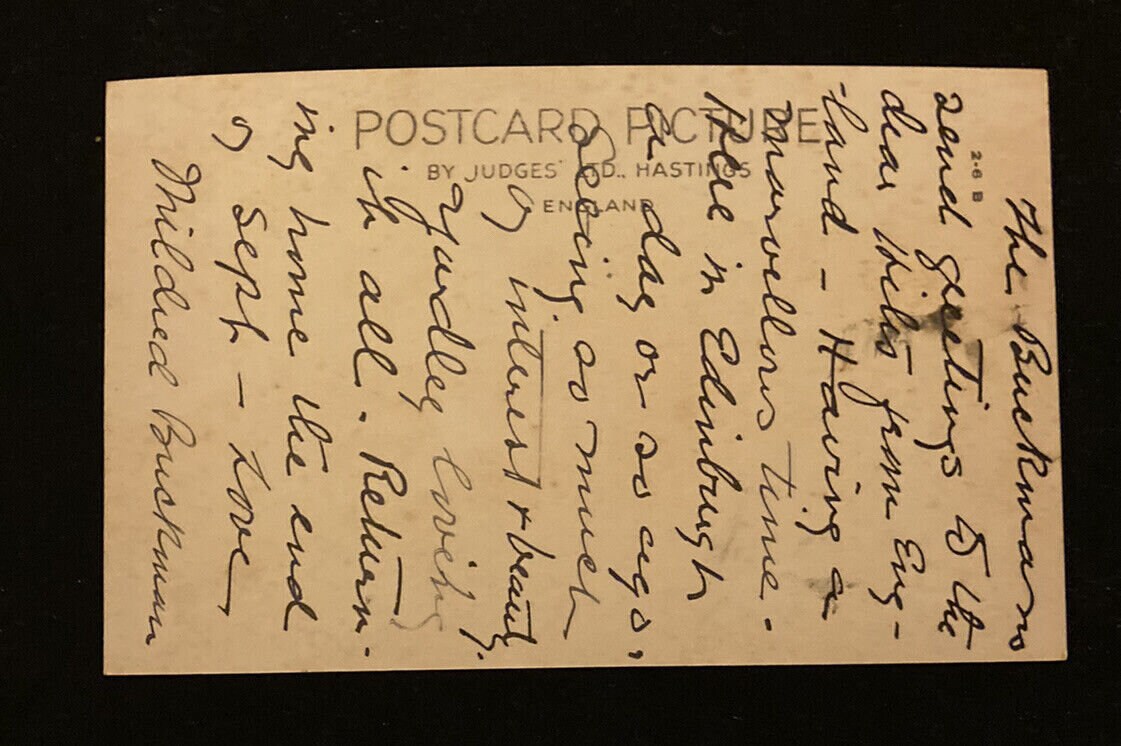 POSTCARD PICTURE
BY JUDGES' LTD., HASTINGS
ENGLAND
2-6 B
The Buckmans
send greetings to the
dear from Eng-
-land - Having a
marvellous time.-
Here in Edinburgh
a day or so ago,
seeing so much
of interest & beauty.
Yardley loving
it all. Return-
ing home the end
of Sept - Love
Mildred Buckman